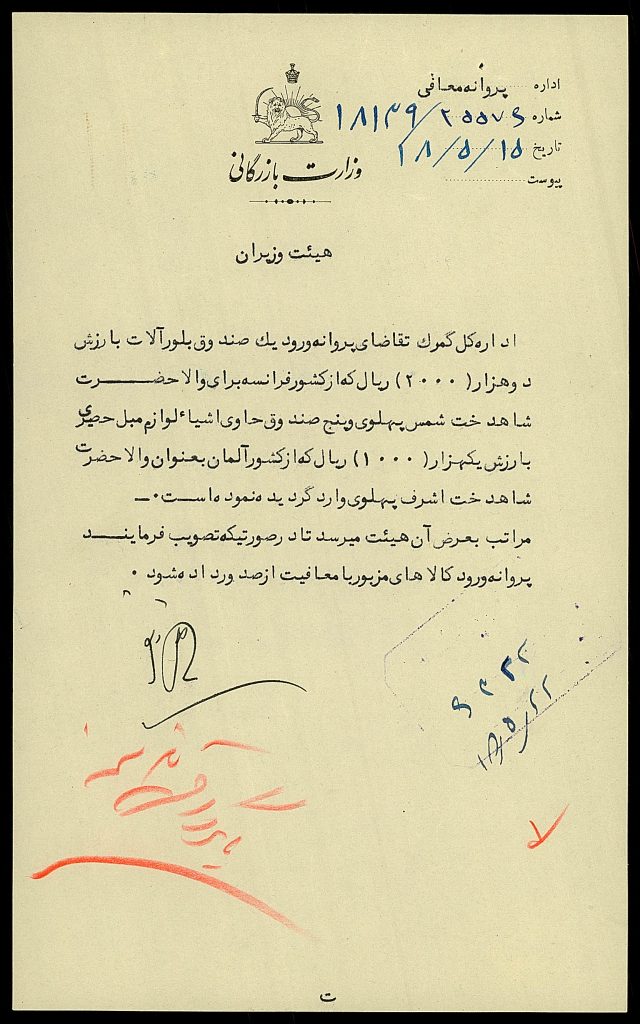 اداره پروانه معافی
شماره ۱۸۱۳۹/۲۵۵۷۶
تاریخ ۱۸/۵/۱۵
پیوست
وزارت بازرگانی
هیئت وزیران
اداره کل گمرك تقاضای پروانه ورود یك صندوق بلورآلات بارزش
دوهزار (۲۰۰۰) ریال که از کشور فرانسه برای والاحضرت
شاهدخت شمس پهلوی و پنج صندوق حاوی اشیاء لوازم مبل حصیری
بارزش یکهزار (۱۰۰۰) ریال که از کشور آلمان بعنوان والاحضرت
شاهدخت اشرف پهلوی وارد گردیده نموده است .
مراتب بعرض آن هیئت میرسد تا درصورتیکه تصویب فرمایند
پروانه ورود کالاهای مزبور با معافیت از صدور داده شود .
۶۳۲۲
۱۸/۵/۲۲
ت